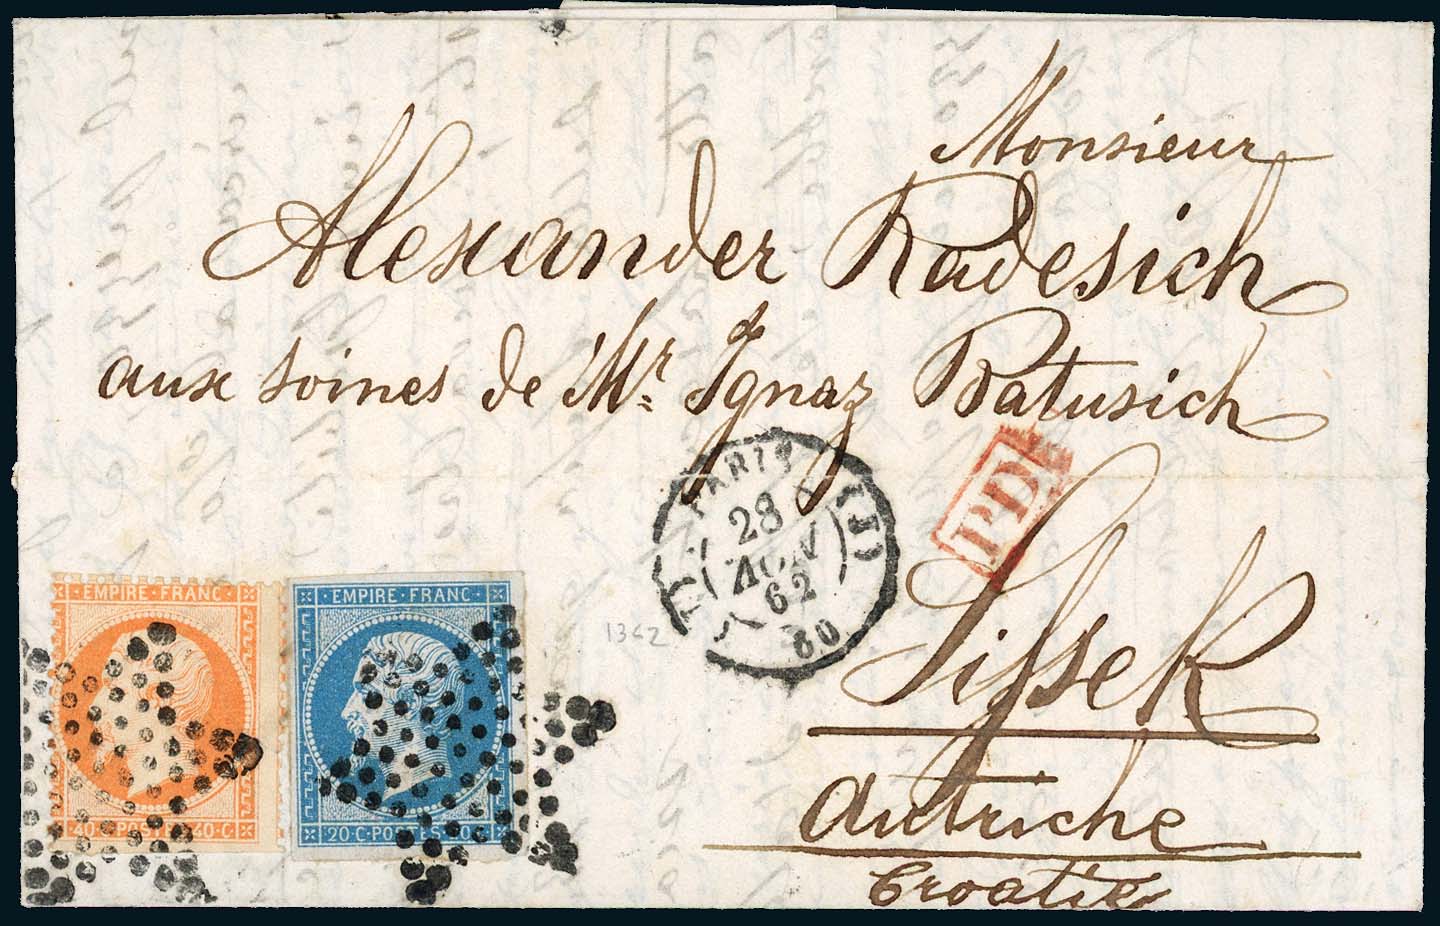 Monsieur
Alexander Radesich
aux soines de Mr. Ignaz Batusich
Sissek
Autriche
Croatie
PARIS
(J)
28
NOV
62
60
P.D.
1362
EMPIRE FRANC
40·C·POSTES·40·C
EMPIRE FRANC
20·C·POSTES·20·C